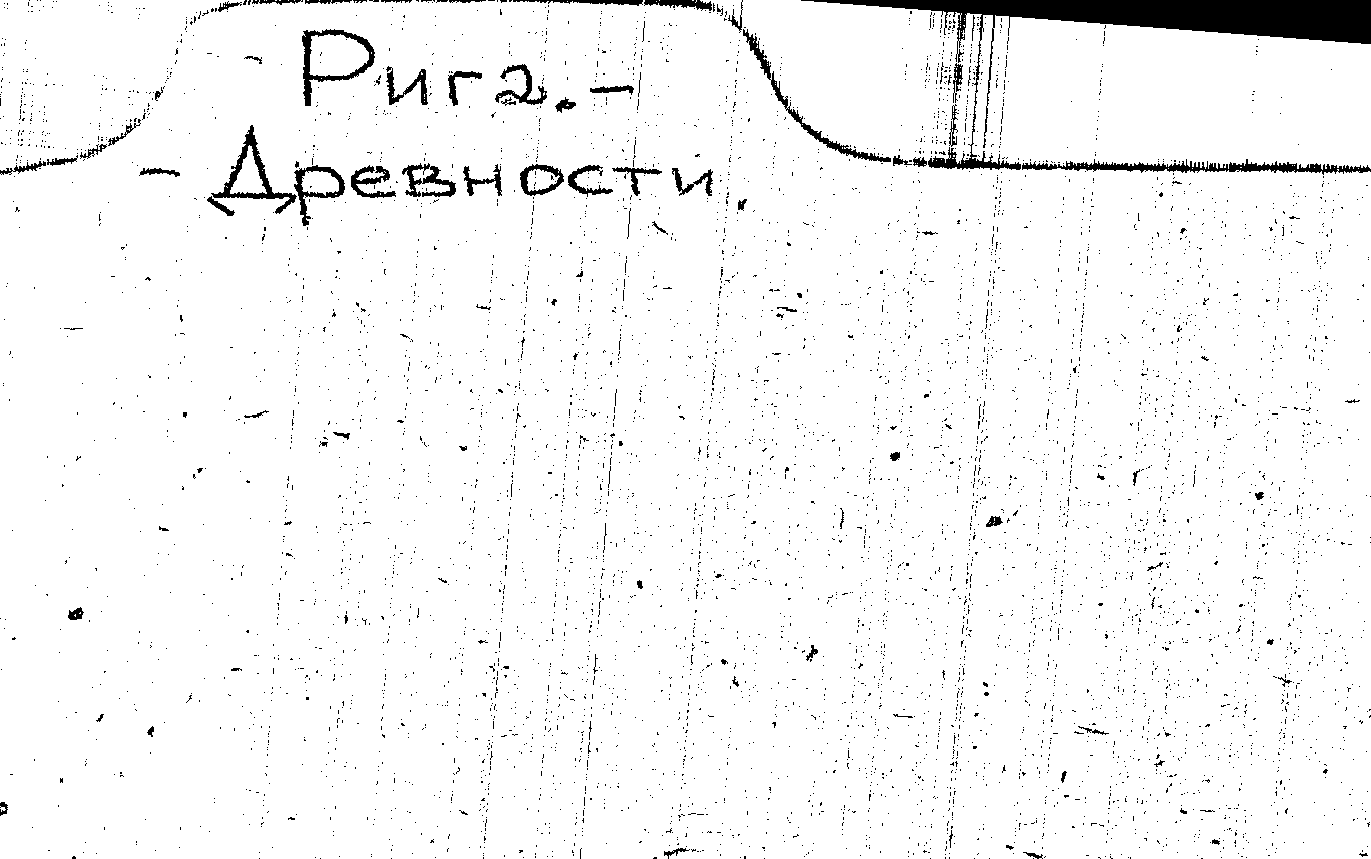 Рига.-
- Древности.